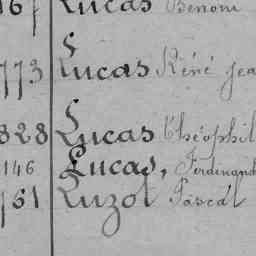 Lucas Benoni
773 Lucas Réné Jea
828 Lucas Théophil
146 Lucas, Ferdinand
761 Luzot Pascal